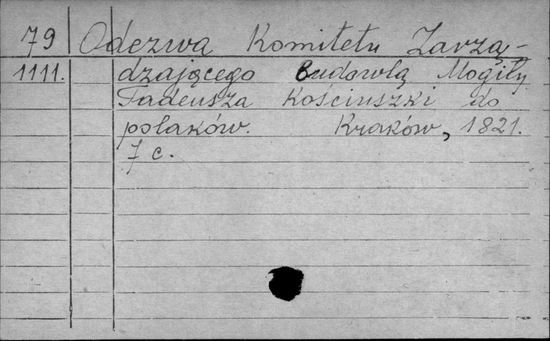 79 Odezwa Komitetu Zarzą-
1111. dzającego Budowlą Mogiły
Tadeusza Kościuszki do
polaków. Kraków, 1821.
7 c.